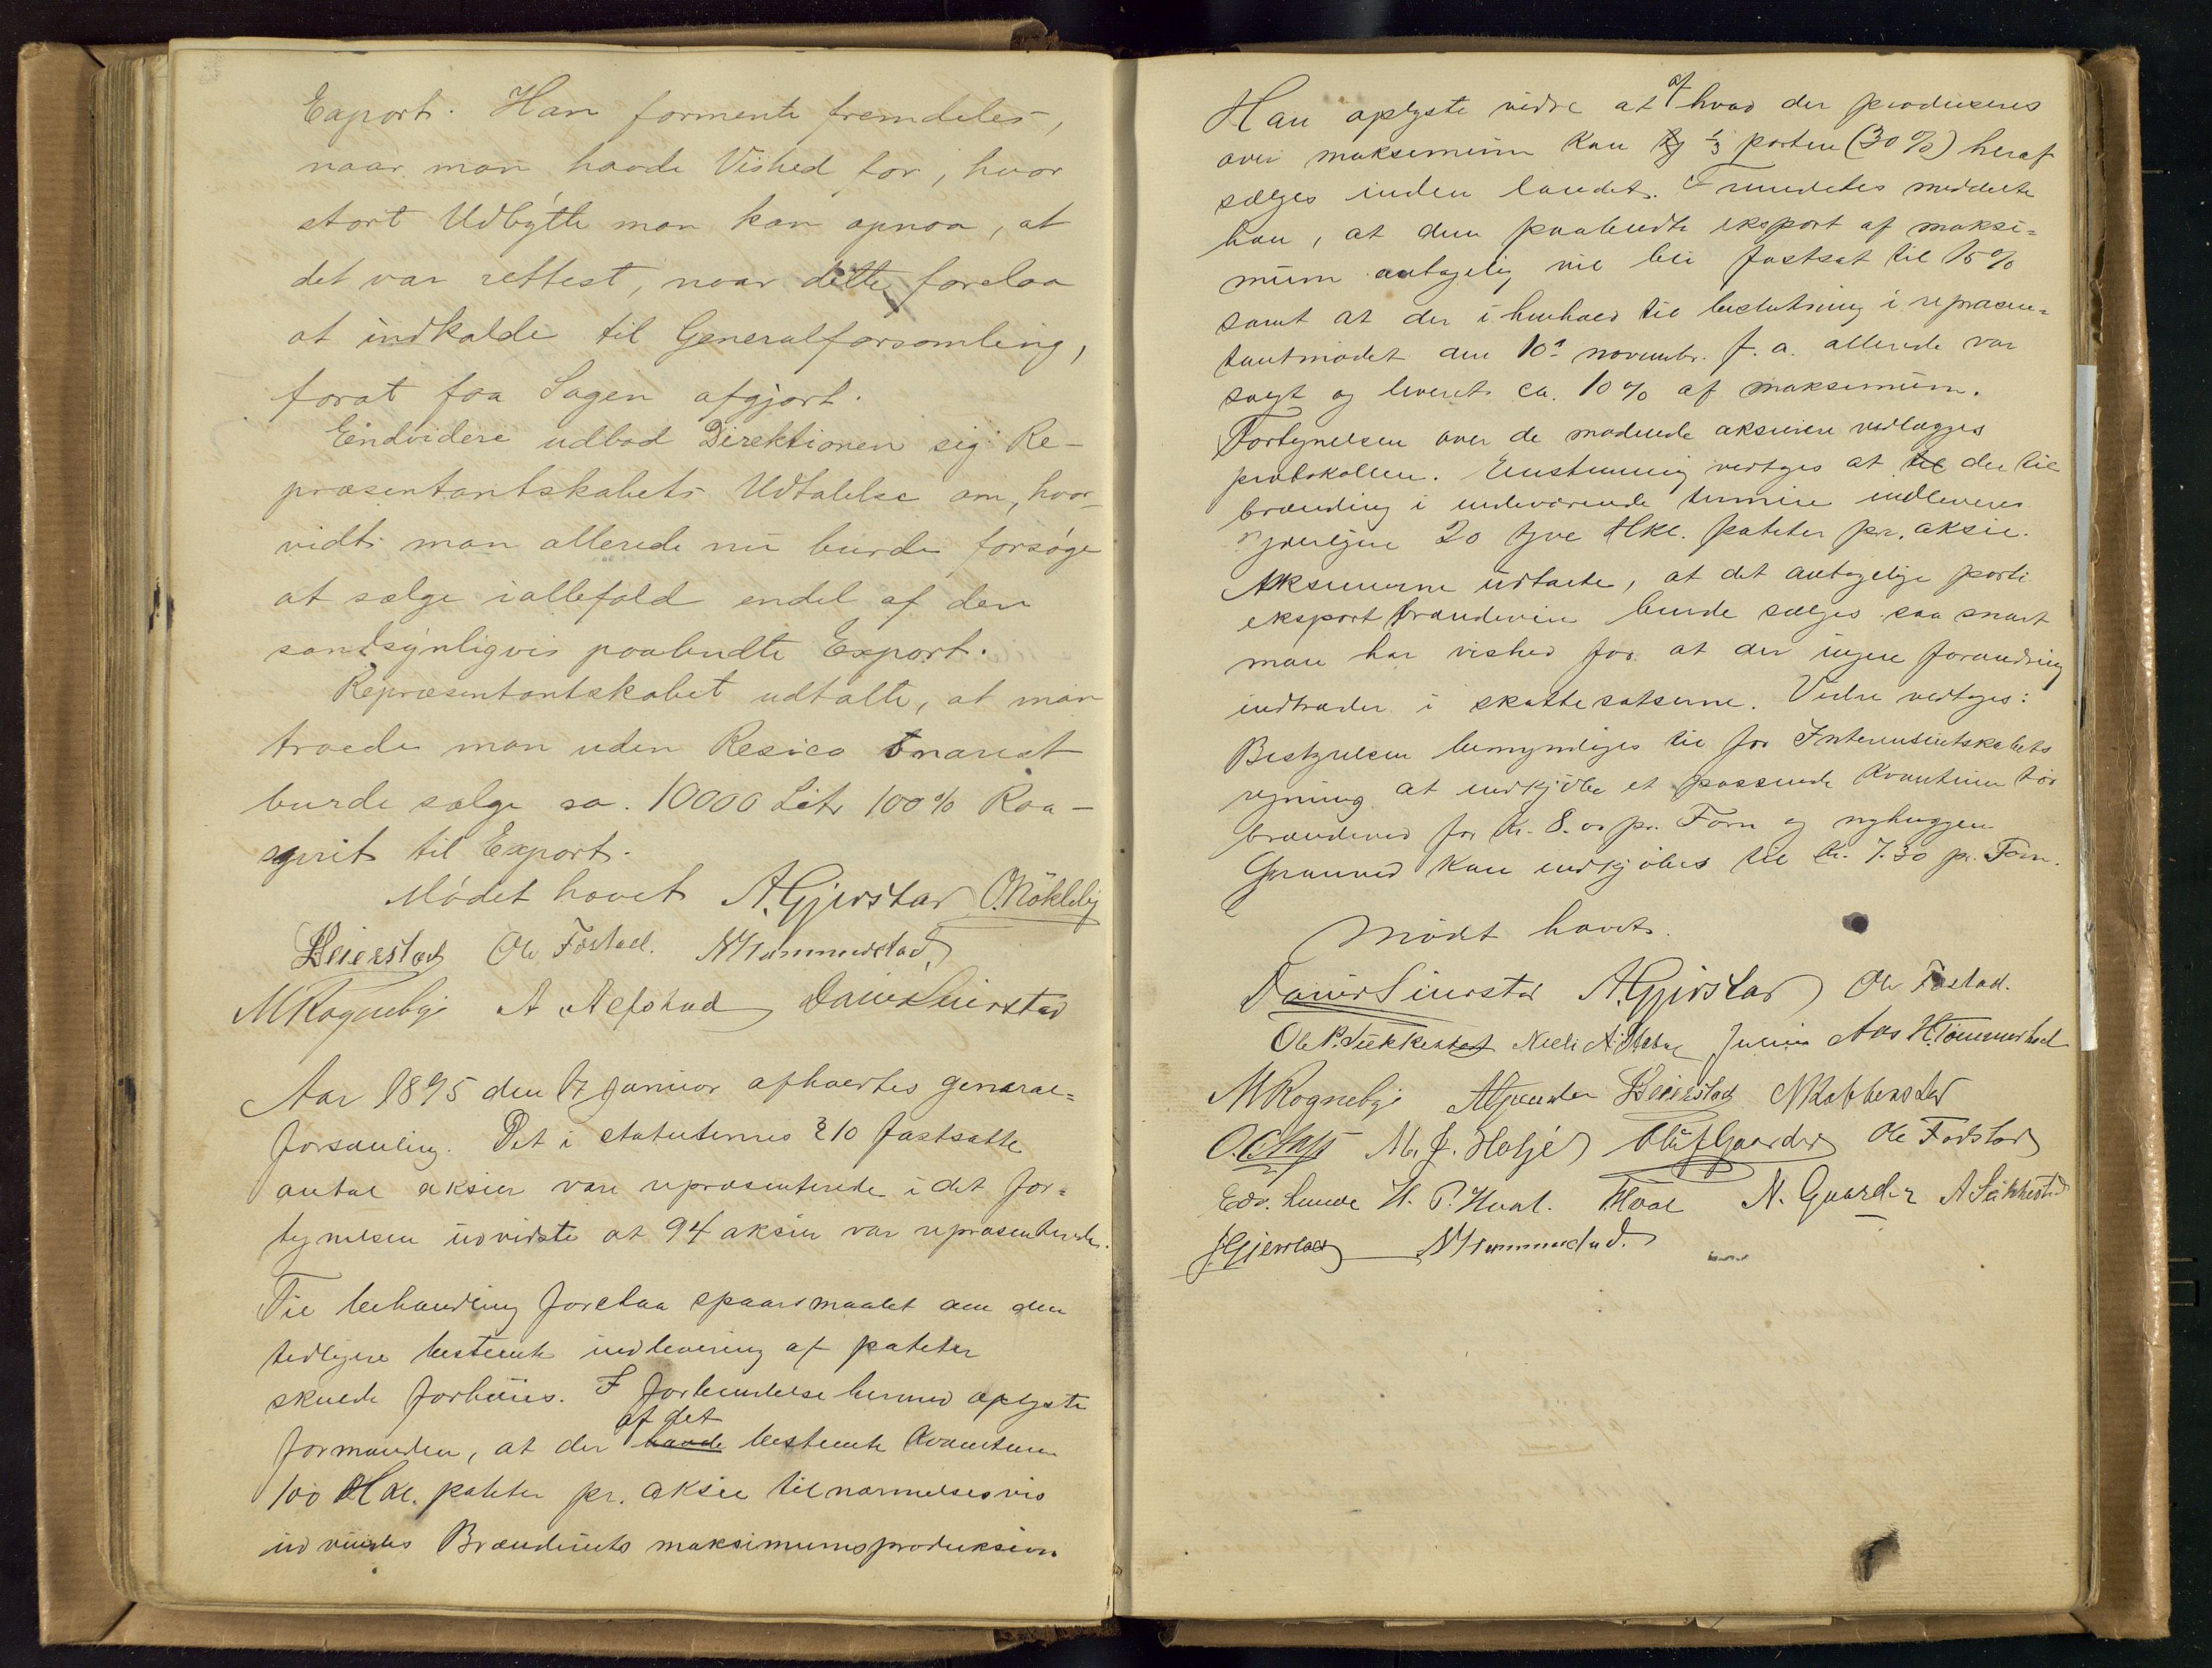 Export. Han formente fremdeles,
naar man havde Vished for, hvor
stort Udbytte man kan opnaa, at
det var rettest, naar dette forelaa
at indkalde til Generalforsamling,
forat faa Sagen afgjort.
Endvidere udbad Direktionen sig Re-
præsentantskabets Udtalelse om, hvor-
vidt man allerede nu burde forsøge
at sælge iallefald endel af den
sandsynligvis paabudte Export.
Repræsentantskabet udtalte, at man
troede man uden Resico snarest
burde sælge ca. 10000 Litr 100% Raa-
sprit til Export.
Mödet hævet A. Gjerstad O. Nökleby
Seierstad Ole Fostad. N Tommerstad
M Rognebye A Alfstad Daniel Seierstad
Aar 1895 den 17 januar afholdtes general=
forsamling. Det i statuternes § 10 fastsatte
antal aksier vare representerede i det for=
tegnelsen udviste at 94 aksier var repræsenterede.
Til behandling forelaa spaarsmaalet om den
tidligere bestemte indlevering af poteter
skulde forhöies. I forbindelse hermed oplyste
af det
formanden, at der havde bestemte kvantum
100 Hkl. poteter pr. aksie tilnærmelsesvis
udvindes Brænderiets maksimumsproduksion
Han oplyste vidre at af hvad der produseres
over maksimum kan 1/3 parten (30%) heraf
sælges inden landet. Fremdeles meddelte
han, at den paabudte eksport af maksi=
mum antagelig vil bli fastsat til 15%
samt at der i henhold til beslutning i repræsen=
tantmødet den 10de novembr. f. a. allerede var
solgt og leveret ca. 10% af maksimum.
Fortegnelsen over de mødende aksierere vedlægges
protokollen. Enstemmig vedtages at til der til
brænding i indeværende termin indleveres
yderligere 20 tyve Hkl. poteter pr. aksie.
Aksierne udtalte, at det antagelige parti
eksportbrændevin burde sælges saa snart
man har vished for at der ingen forandring
indtræder i skattesatserne. Vidre vedtages:
Bestyrelsen bemyndiges til for Interessentskabets
regning at indkjöbe et passende kvantum tör
brændeved for Kr. 8.00 pr. Favn og nyhuggen
Granved kan indkjöbes til Kr. 7.30 pr. Favn.
Mödet hævet.
Daniel Seierstad A. Gjerstad Ole Fostad.
Ole P. Sukkestad Julius Aas H. Tömmerstad
M Rognebye Seierstad N Kobberstad
M. J. Hotje Oluf Gaarder Ole Fodstad
Edv. Lunde H. P. Hval. Hval N. Gaarder A Sukkestad
J Gjerstad N Tommerstad.